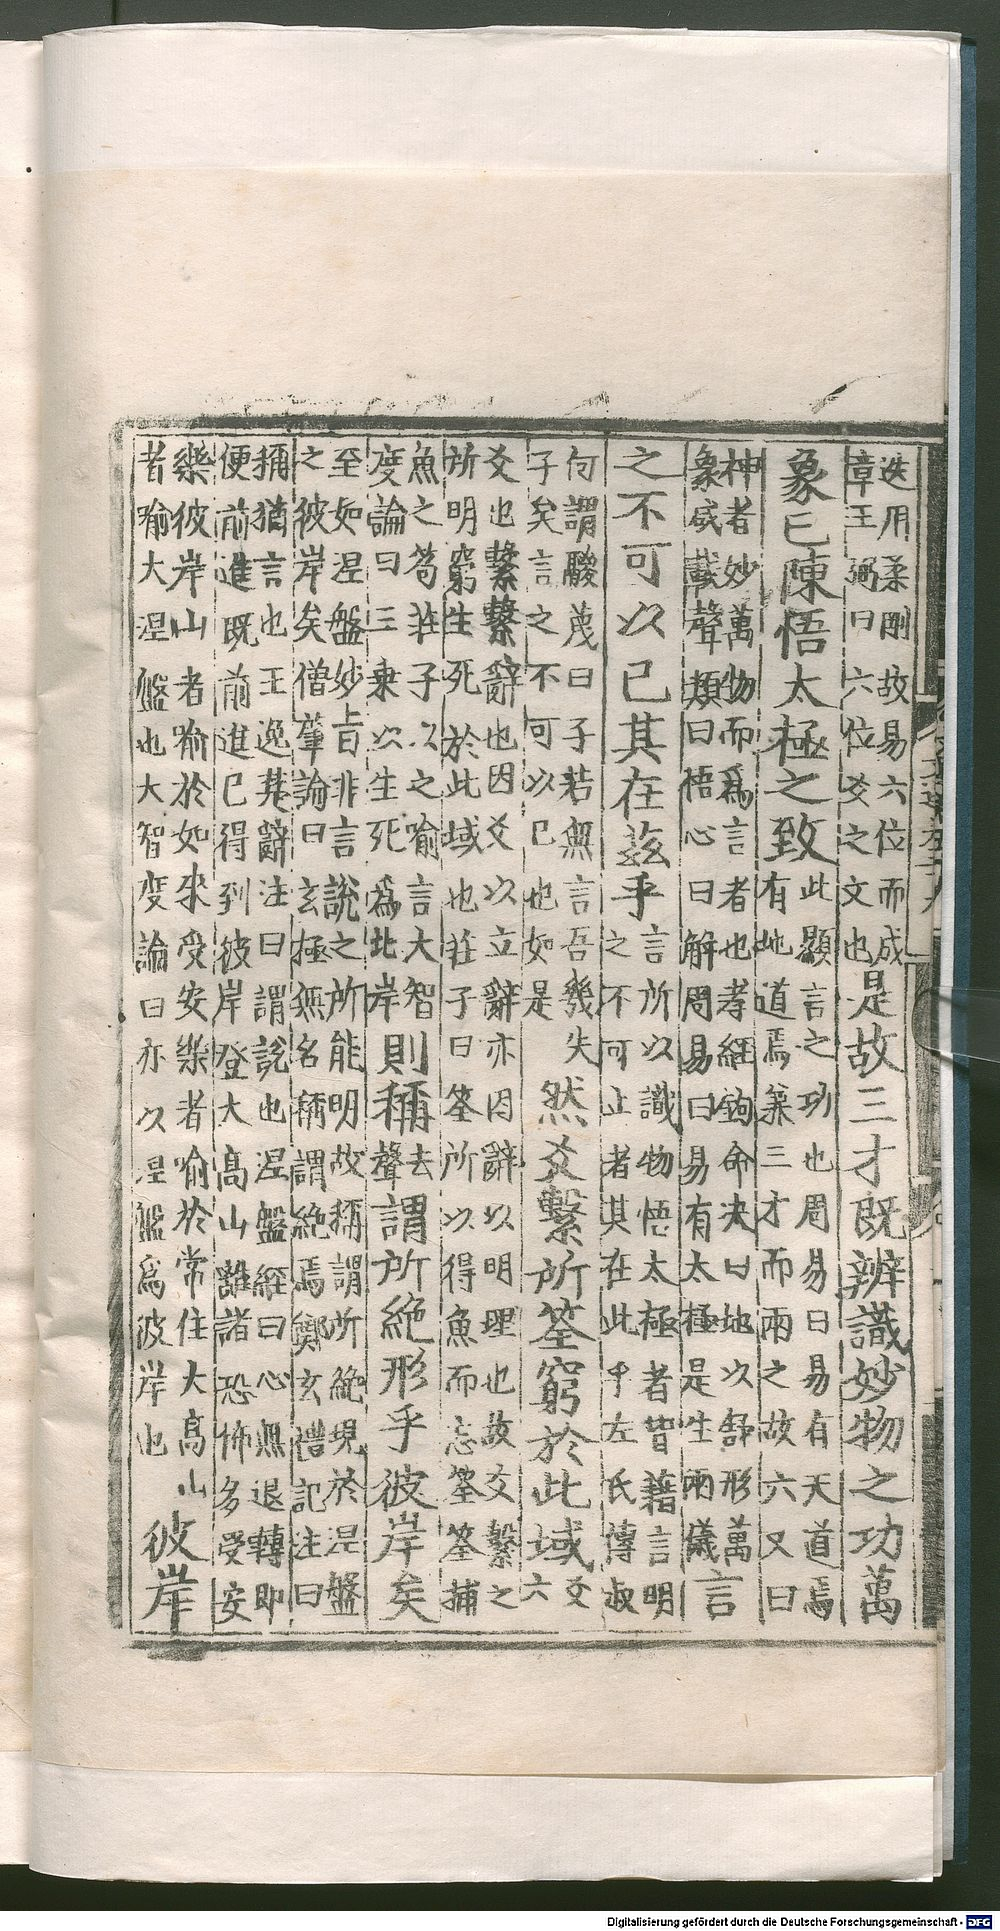 迭用柔剛故易六位而成
章王弼曰六位爻之文也
是故三才既辨識妙物之功萬
象已陳悟太極之致
此顯言之功也周易曰易有天道焉
有地道焉兼三才而兩之故六又曰
神者妙萬物而為言者也孝經鉤命决曰地以舒形萬
象咸載聲類曰悟心曰解周易曰易有太極是生兩儀
言
之不可以已其在茲乎
言所以識物悟太極者皆藉言明
之不可止者其在此乎左氏傳叔
向謂鬷蔑曰子若無言吾幾失
子矣言之不可以已也如是
然爻繫所筌窮於此域
爻
六
爻也繫繫辭也因爻以立辭亦因辭以明理也故爻繫之
所明窮生死於此域也莊子曰筌所以得魚而忘筌筌捕
魚之笱莊子以之喻言大智
度論曰三乗以生死為此岸
則稱
去
聲
謂所絶形乎彼岸矣
至如涅盤妙旨非言說之所能明故稱謂所絶現於涅盤
之彼岸矣僧肇論曰玄極無名稱謂絶焉鄭玄禮記注曰
稱猶言也王逸楚辭注曰謂說也涅盤經曰心無退轉即
便前進既前進已得到彼岸登大高山離諸恐怖多受安
樂彼岸山者喻於如來受安樂者喻於常住大高山
者喻大涅盤也大智度論曰亦以涅盤為彼岸也
彼岸
Digitalisierung gefördert durch die Deutsche Forschungsgemeinschaft - DFG